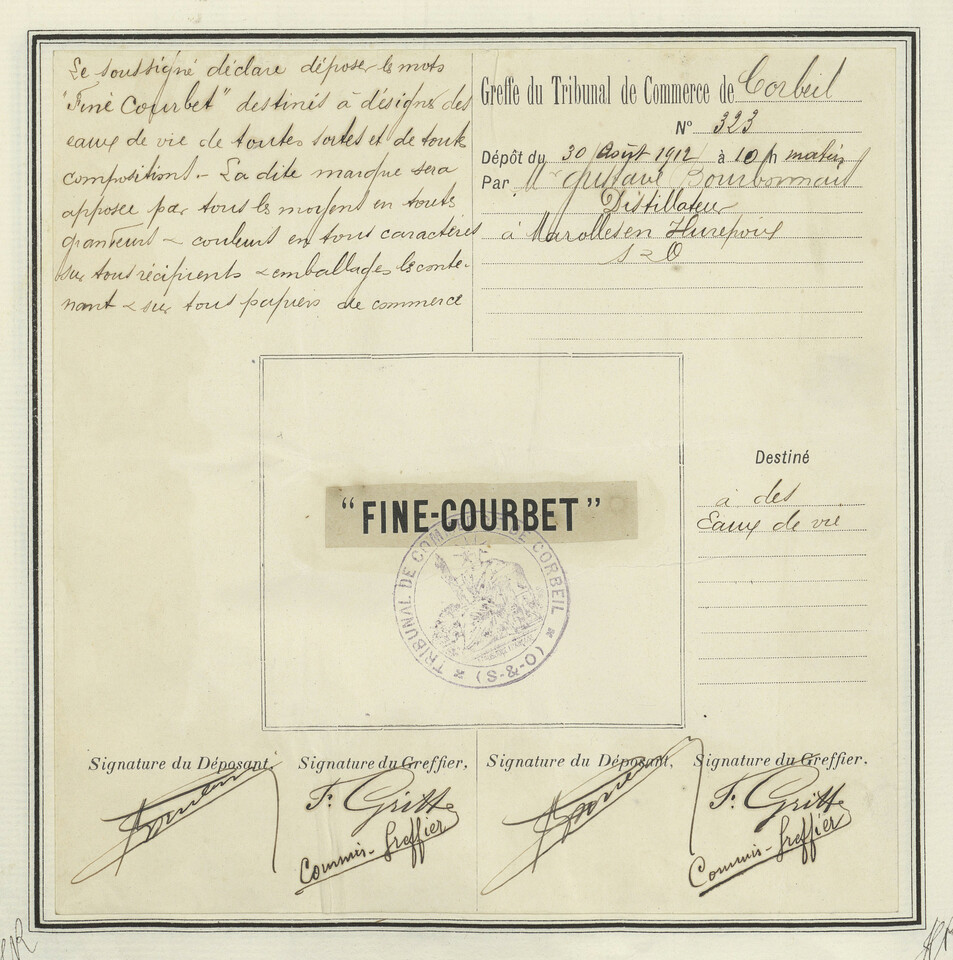 Le soussigné déclare déposer les mots
"Fine Courbet" destinés à désigner des
eaux de vie de toutes sortes et de toute
compositions. - La dite marque sera
apposée par tous les moyens en toutes
grandeurs & couleurs en tous caractères
sur tous récipients & emballages le conte-
nant & sur tous papiers de commerce
Greffe du Tribunal de Commerce de Corbeil
N° 323
Dépôt du 30 Août 1912 à 10 h matin
Par Mr Gustave Bourbonnais
Distillateur
à Marolles en Hurepoix
S & O
"FINE-COURBET"
TRIBUNAL DE COMMERCE DE CORBEIL * (S-&-O) *
Destiné
à des
Eaux de vie
Signature du Déposant,
Signature du Greffier,
F. Gritte
Commis-Greffier
Signature du Déposant,
Signature du Greffier,
F. Gritte
Commis-Greffier